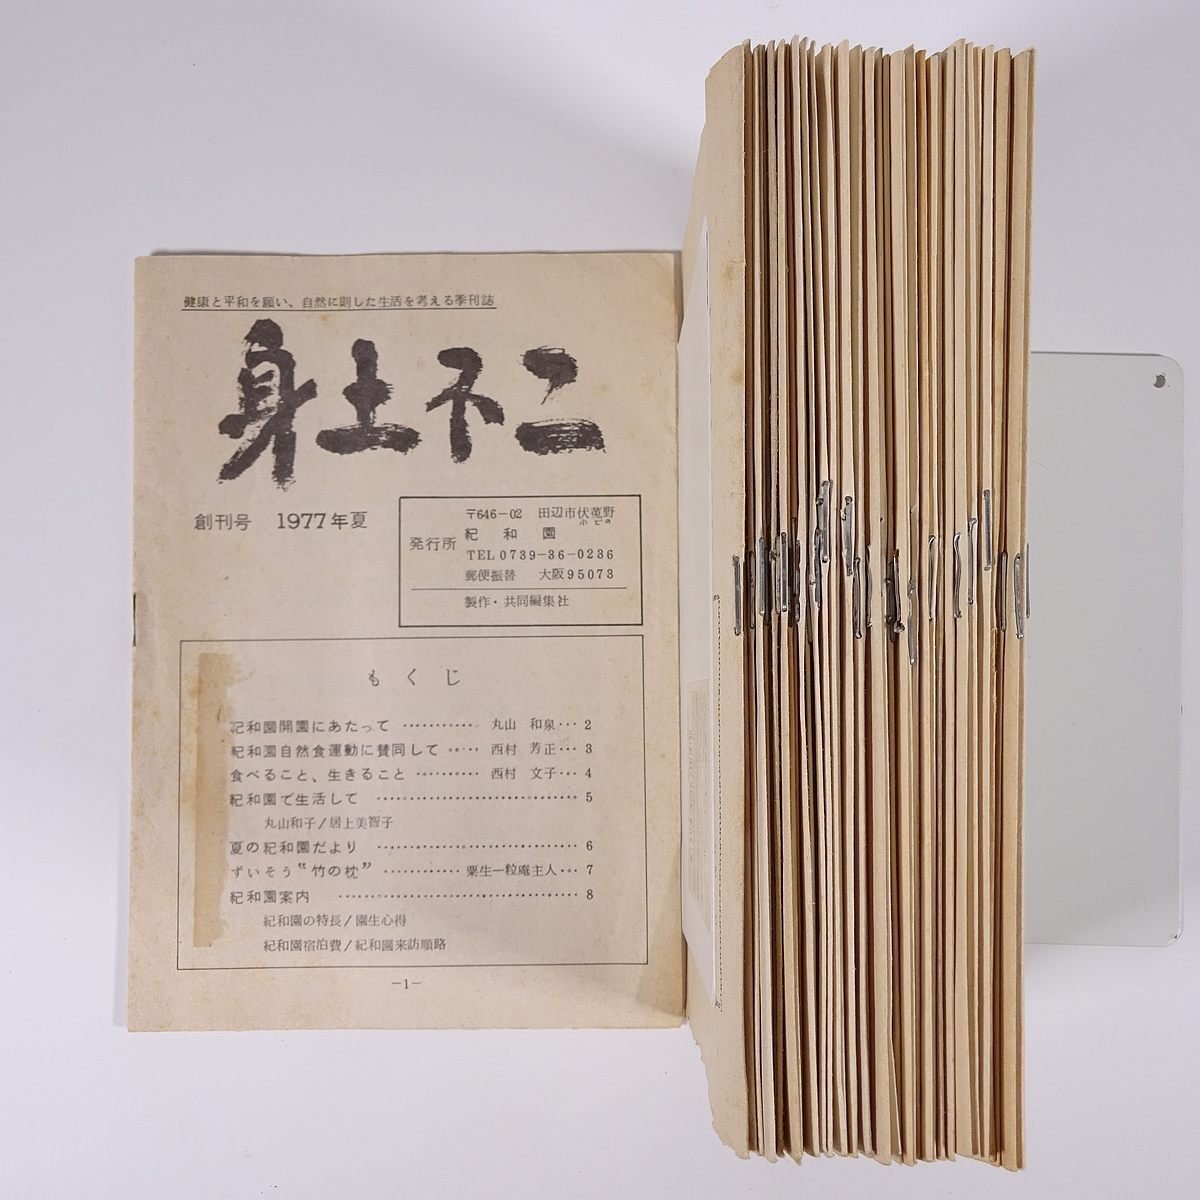 健康と平和を願い、自然に則した生活を考える季刊誌
身土不二
創刊号 1977年夏
発行所
〒646-02 田辺市伏菟野
ふどの
紀和園
TEL 0739-36-0236
郵便振替 大阪95073
製作・共同編集社
もくじ
紀和園開園にあたって ………… 丸山 和泉… 2
紀和園自然食運動に賛同して …… 西村 芳正… 3
食べること、生きること ………… 西村 文子… 4
紀和園で生活して ………………………… 5
丸山和子/居上美智子
夏の紀和園だより ………………………… 6
ずいそう〝竹の枕〟 ………… 粟生一粒庵主人… 7
紀和園案内 ………………………… 8
紀和園の特長/園生心得
紀和園宿泊費/紀和園来訪順路
-1-